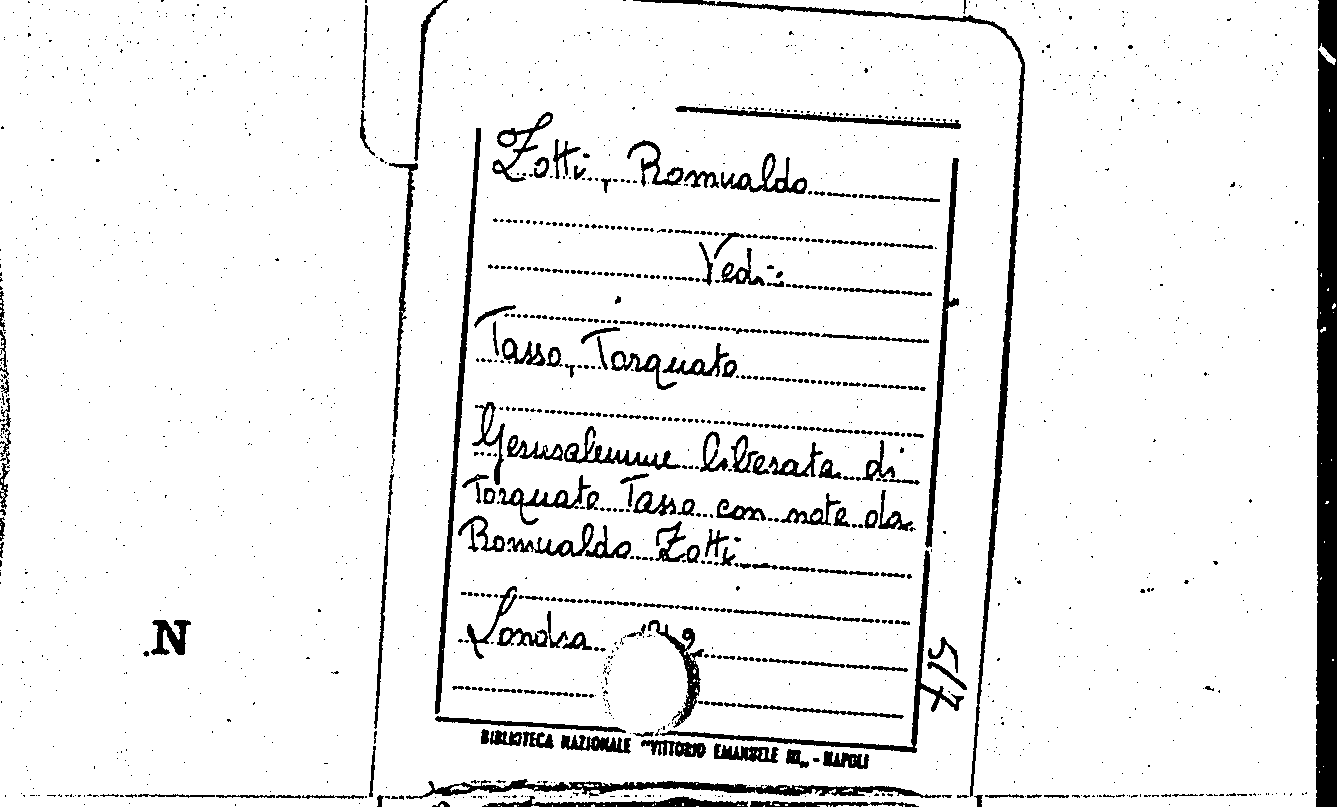 Zotti, Romualdo
Vedi:
Tasso, Torquato
Gerusalemme liberata di
Torquato Tasso con note da
Romualdo Zotti
Londra
N
5/7
BIBLIOTECA NAZIONALE "VITTORIO EMANUELE III„ - NAPOLI